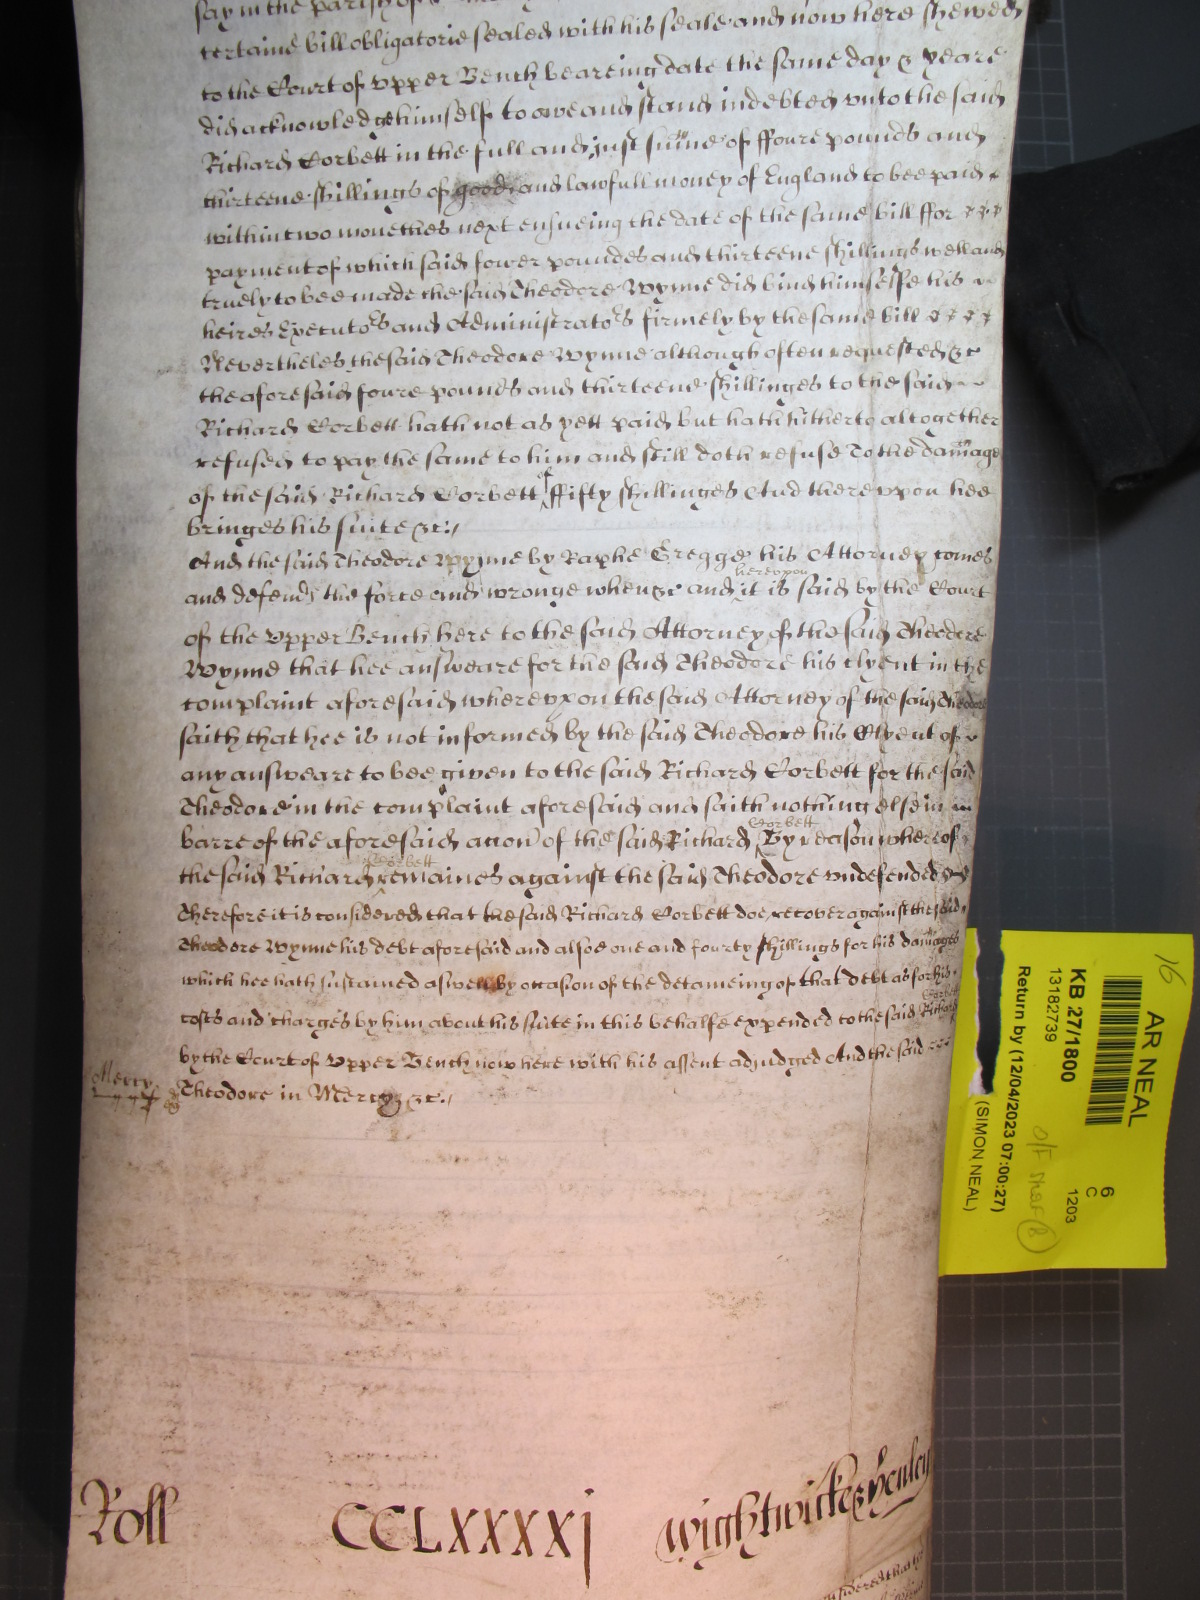 say in the parish of
certaine bill obligatorie sealed with his seale and now here shewed
to the Court of vpper Bench beareing date the same day & yeare
did acknowledge himself to owe and stand indebted vnto the said
Richard Corbett in the full and just sum̄e of ffoure pounds and
thirteene shillings of good and lawfull money of England to bee paid
within two monethes next ensueing the date of the same bill ffor
payment of which said fower poundes and thirteene shillings well and
truely to bee made the said Theodore Wynne did bind himselfe his
heires Executors and Administrators firmely by the same bill
Nevertheles the said Theodore Wynne although often requested &c
the aforesaid foure pounds and thirteene shillinges to the said
Richard Corbett hath not as yett paid but hath hitherto altogether
refused to pay the same to him and still doth refuse To the damage
of the said Richard Corbett of ffifty shillinges And therevpon hee
bringes his suite &c:/
And the said Theodore Wynne by Raphe Gregge his Attorney comes
and defends the force and wronge when &c and herevpon it is said by the Court
of the vpper Bench here to the said Attorney of the said Theodore
Wynne that hee answeare for the said Theodore his clyent in the
complaint aforesaid wherevpon the said Attorney of the said Theodore
saith that hee is not informed by the said Theodore his Clyent of
any answeare to bee given to the said Richard Corbett for the said
Theodore in the complaint aforesaid and saith nothing else in
barre of the aforesaid accon̄ of the said Richard Corbett By reason whereof
the said Richard Corbett remaines against the said Theodore vndefended
Therefore it is considered that the said Richard Corbett doe recover against the said
Theodore Wynne his debt aforesaid and alsoe one and fourty shillings for his damages
which hee hath sustained aswell by occasion of the detaineing of that debt as for his
costs and charges by him about his suite in this behalfe expended to the said Richard Corbett
by the Court of vpper Bench now here with his assent adjudged And the said
Mercy
Theodore in Mercy &c:/
Roll CCLXXXXj Wightwicke & Henley
sidered that
16
AR NEAL
KB 27/1800
13182739
6
C
1203
Return by (12/04/2023 07:00:27)
(SIMON NEAL)